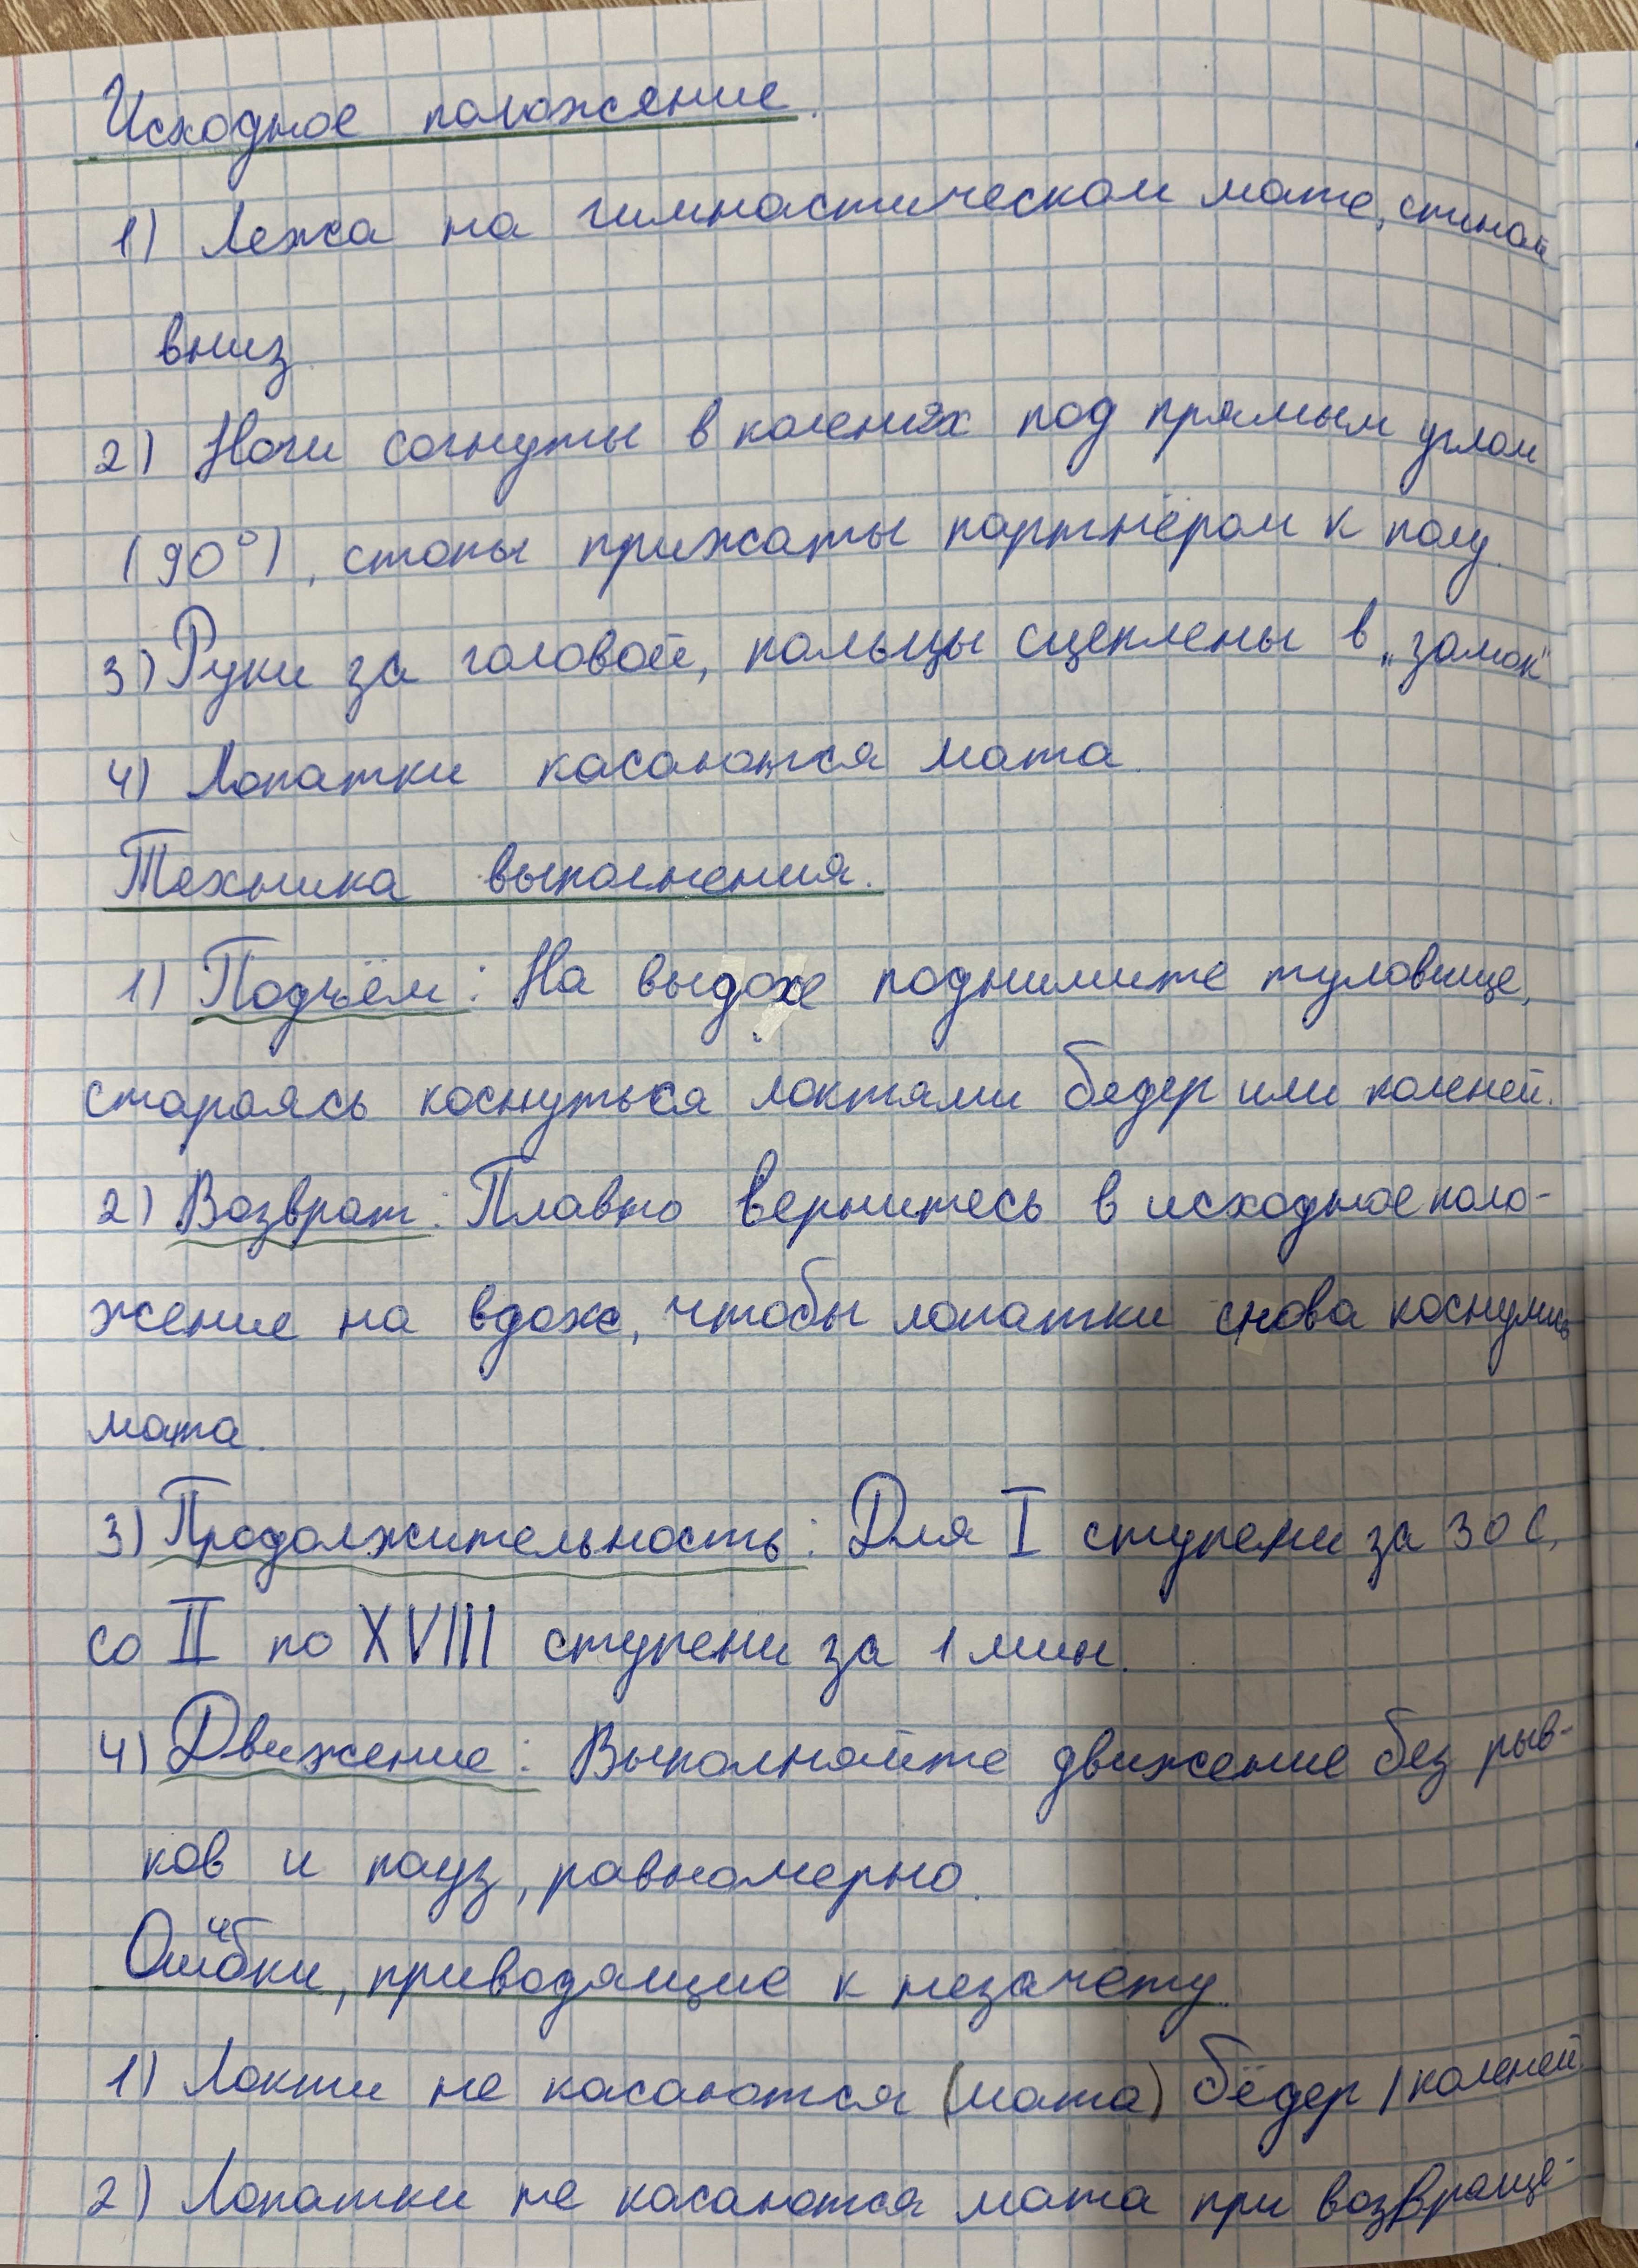 Исходное положение.
1) Лежа на гимнастическом мате, спиной
вниз.
2) Ноги согнуты в коленях под прямым углом
(90°), стопы прижаты партнёром к полу.
3) Руки за головой, пальцы сцеплены в „замок"
4) Лопатки касаются мата.
Техника выполнения.
1) Подъём: На выдохе поднимите туловище,
стараясь коснуться локтями бедер или коленей.
2) Возврат: Плавно вернитесь в исходное поло-
жение на вдохе, чтобы лопатки снова коснулись
мата.
3) Продолжительность: Для I ступени за 30 с,
со II по XVIII ступени за 1 мин.
4) Движение: Выполняйте движение без рыв-
ков и пауз, равномерно.
Ошибки, приводящие к незачету.
1) Локти не касаются (мата) бёдер / коленей.
2) Лопатки не касаются мата при возвраще-